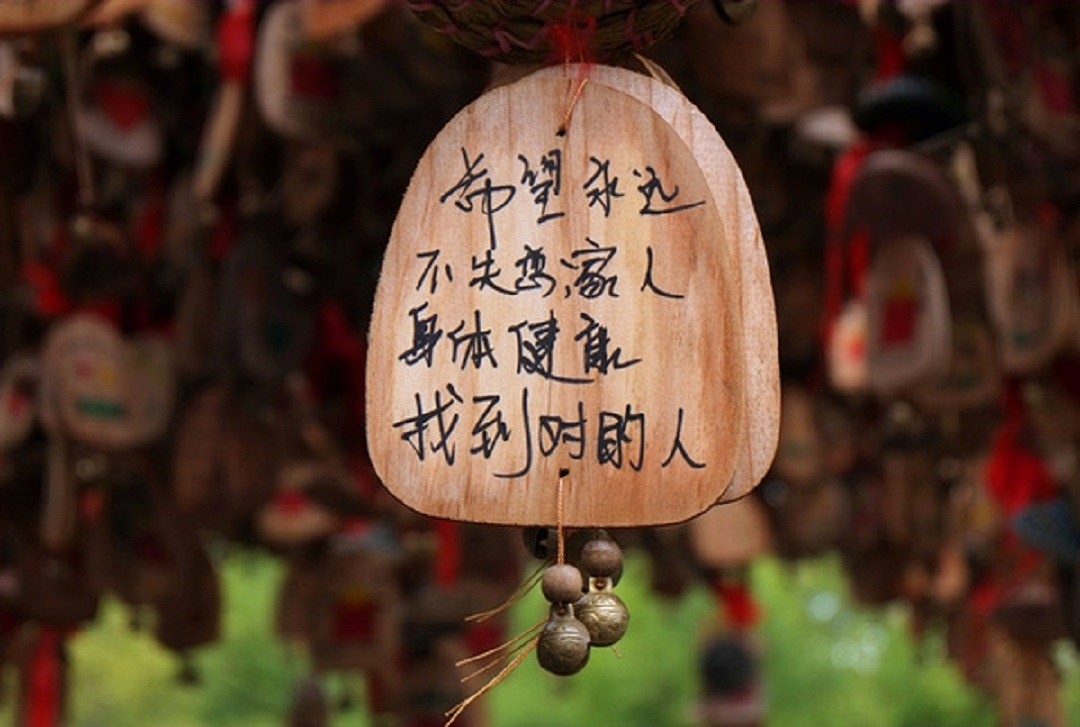 希望永远
不失恋,家人
身体健康
找到对的人